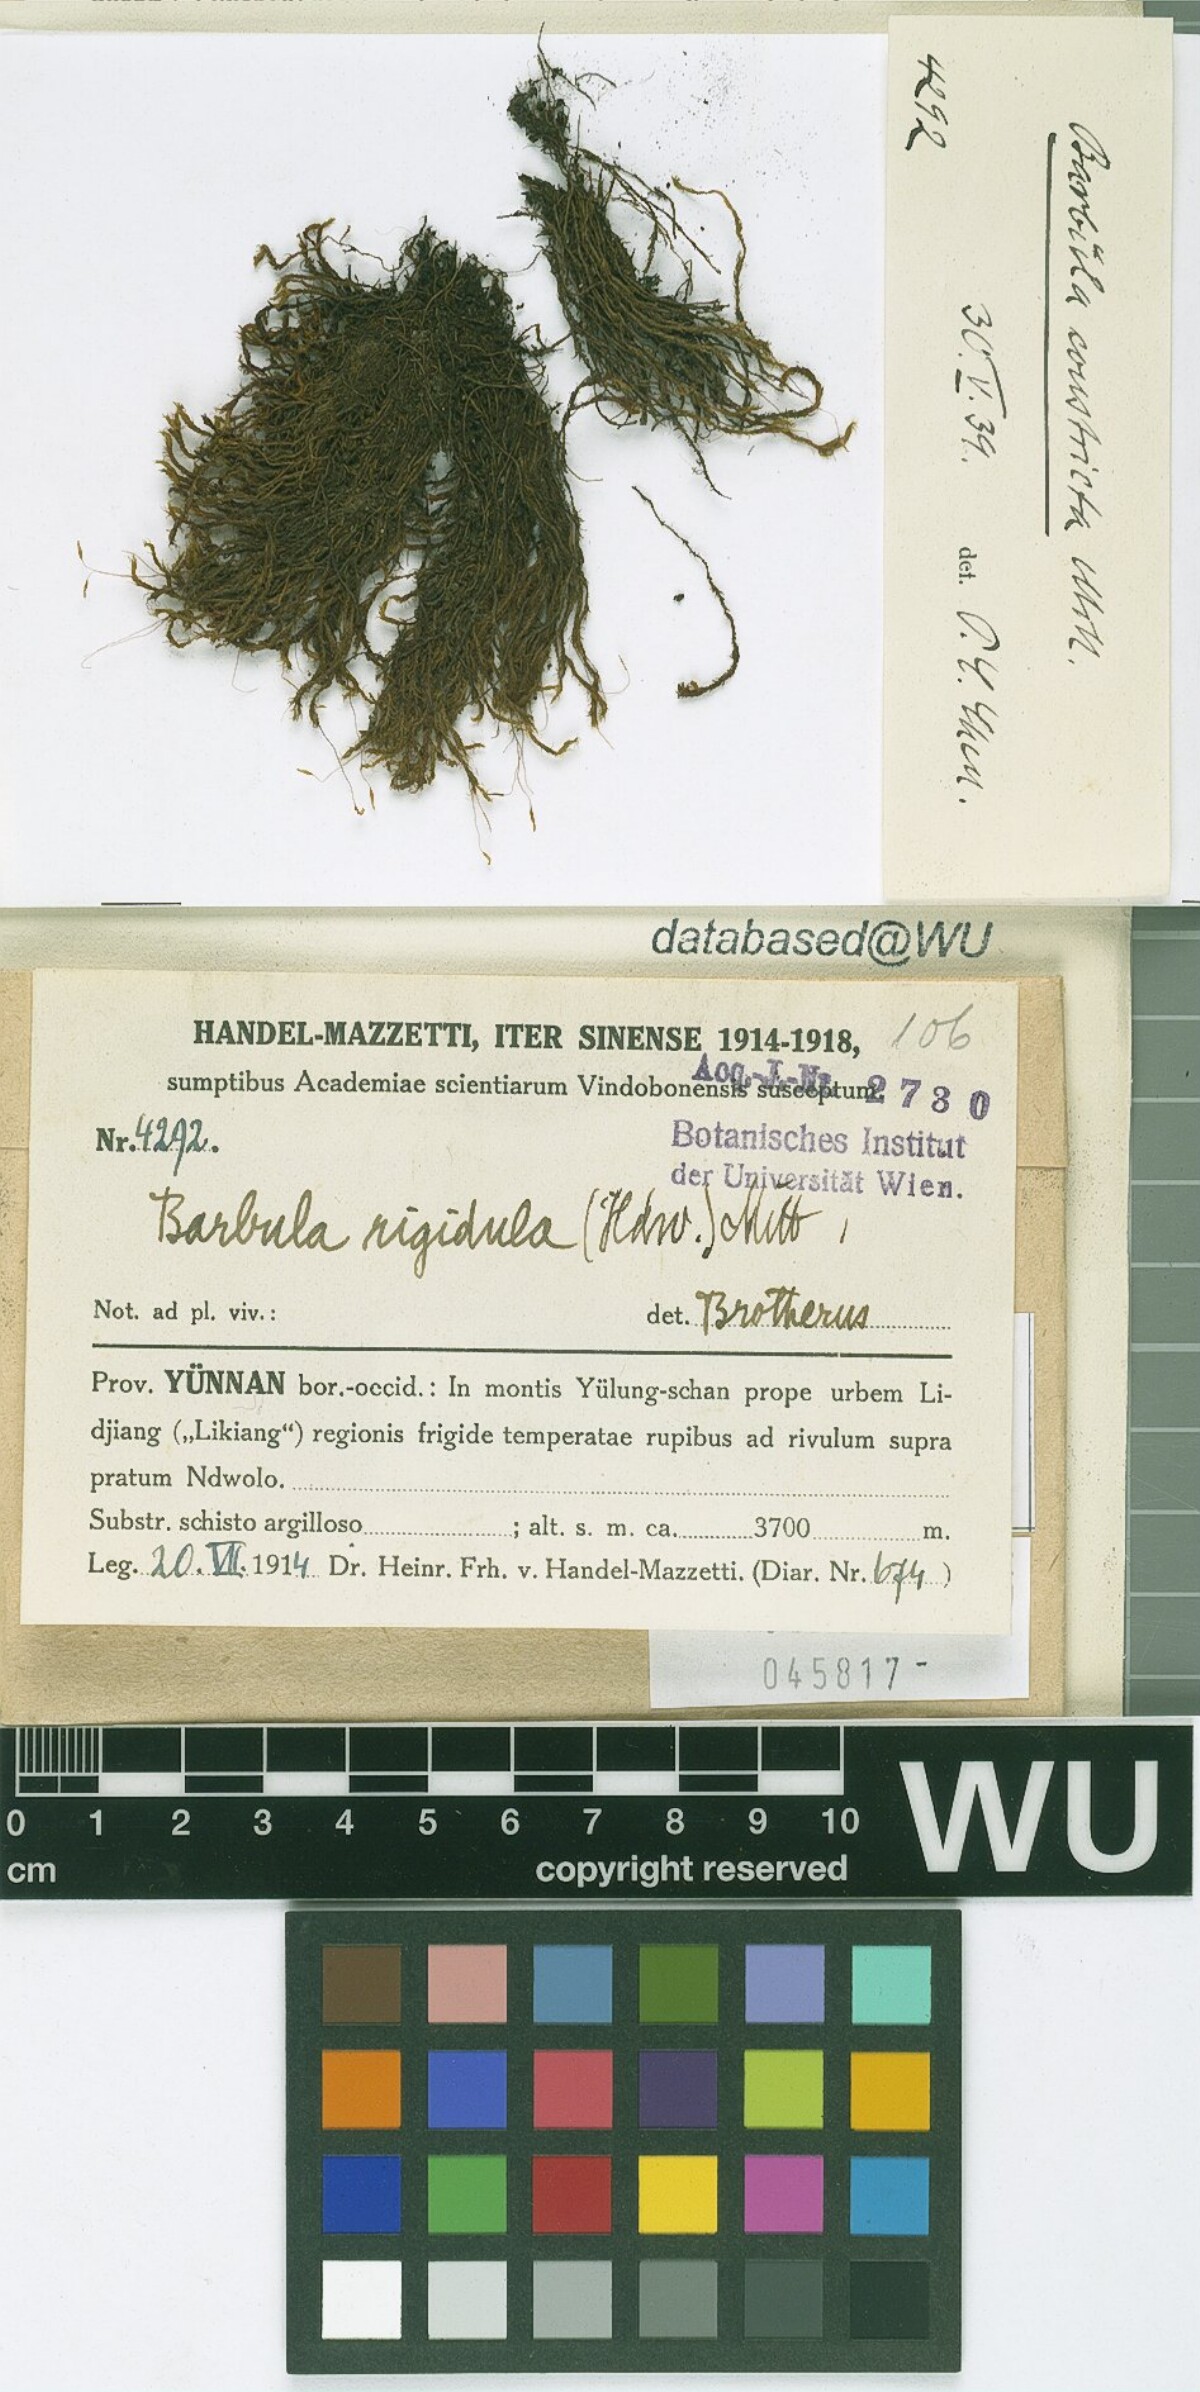 4292
Barbŭla constricta Mitt.
30.V.39. det. P.Y. Chen.
databased@WU
HANDEL-MAZZETTI, ITER SINENSE 1914-1918,
106
sumptibus Academiae scientiarum Vindobonensis susceptum.
Acq.-J.-Nr. 2730
Nr. 4292.
Botanisches Institut
der Universität Wien.
Barbula rigidula (Hdw.) Mitt
Not. ad pl. viv.: det. Brotherus
Prov. YÜNNAN bor.-occid.: In montis Yülung-schan prope urbem Li-
djiang („Likiang“) regionis frigide temperatae rupibus ad rivulum supra
pratum Ndwolo.
Substr. schisto argilloso ; alt. s. m. ca. 3700 m.
Leg. 20.VII.1914 Dr. Heinr. Frh. v. Handel-Mazzetti. (Diar. Nr. 674)
045817-
0 1 2 3 4 5 6 7 8 9 10
cm copyright reserved
WU